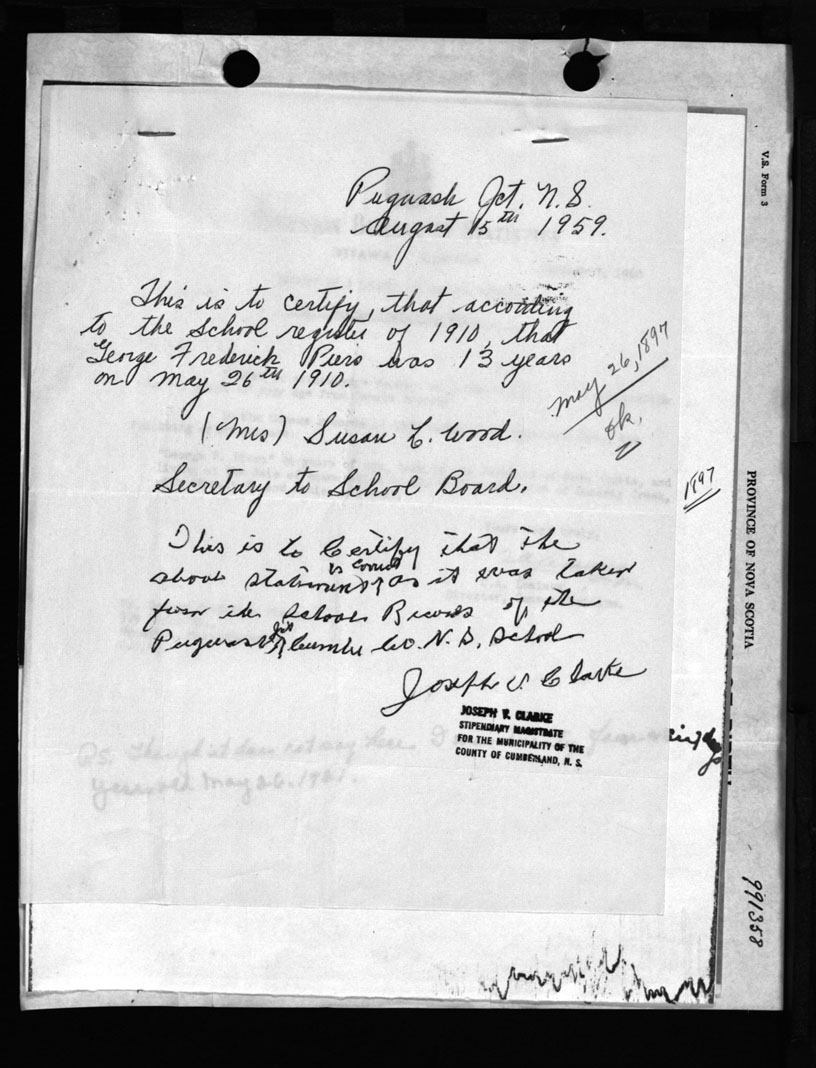 Pugwash Jct. N.S.
August 15th 1959.
This is to certify, that according
to the School register of 1910, that
George Frederick Piers was 13 years
on May 26th 1910.
May 26, 1897
ok.
(Mrs) Susan C. Wood.
Secretary to School Board.
1897
This is to Certify that the
above statement is correct as it was taken
from the School Records of the
Pugwash Jct Cumb. Co. N.S. School
Joseph V. Clarke
JOSEPH V. CLARKE
STIPENDIARY MAGISTRATE
FOR THE MUNICIPALITY OF THE
COUNTY OF CUMBERLAND, N. S.
Ps. Though it does not say here I
years old May 26. 1921.
V.S. Form 3
PROVINCE OF NOVA SCOTIA
991358